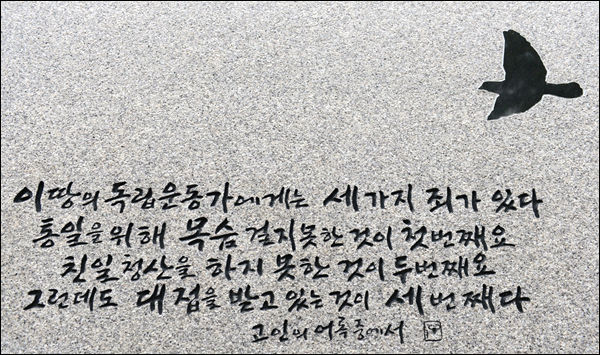 이땅의 독립운동가에게는 세가지 죄가 있다
통일을 위해 목숨 걸지못한 것이 첫번째요
친일청산을 하지 못한 것이 두번째요
그런데도 대접을 받고 있는것이 세번째다
고인의 어록중에서